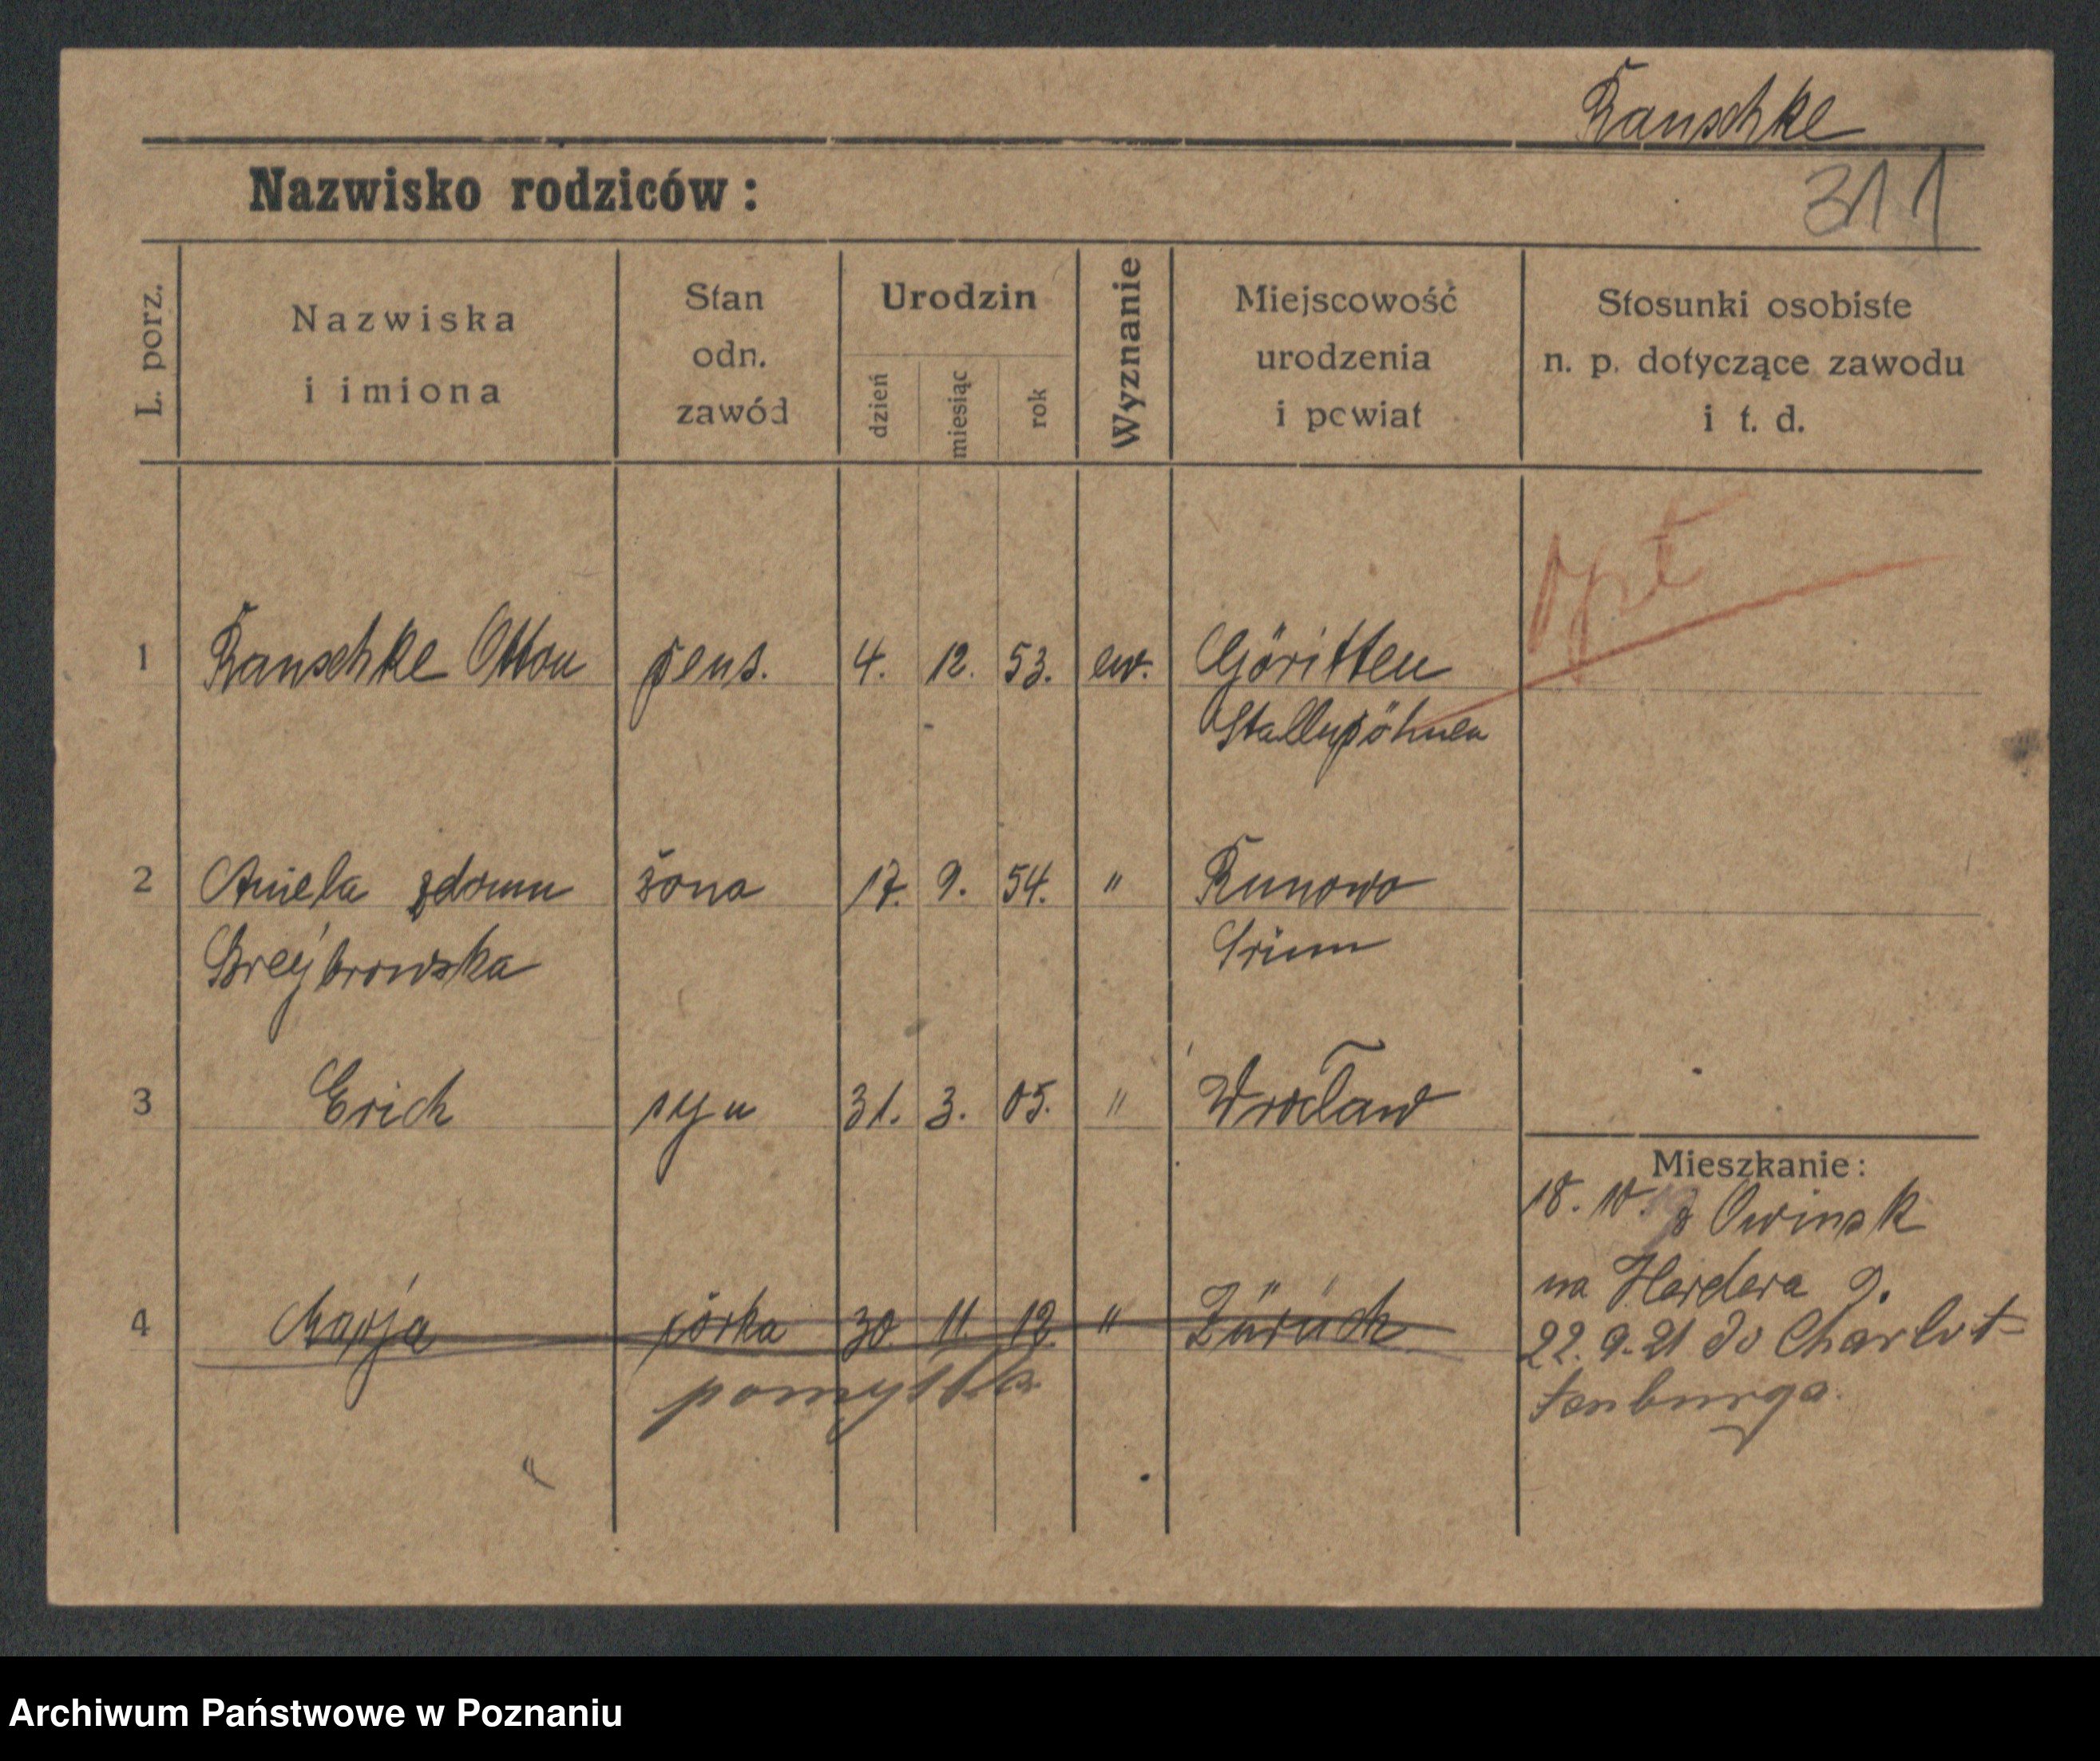 Ranschke
311
Nazwisko rodziców:
L. porz.
Nazwiska
i imiona
Stan
odn.
zawód
Urodzin
dzień
miesiąc
rok
Wyznanie
Miejscowość
urodzenia
i powiat
Stosunki osobiste
n. p. dotyczące zawodu
i t. d.
opt
1 Ranschke Otton pens. 4. 12. 53. ew. Göritten
Stallupöhnen
2 Aniela z domu żona 17. 9. 54. " Runowo
Srimm
3 Erich syn 31. 3. 05. " Wrocław
4 Marja córka 30 11. 12 " Zürich
pomyłka
Mieszkanie:
18. 10. z Owinsk
na Herdera 9.
22. 9. 21 do Charlot-
tenburga.
Archiwum Państwowe w Poznaniu